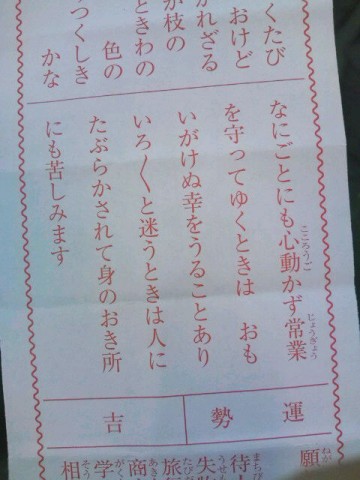 くたび
おけど
かれざる
が枝の
ときわの
色の
つくしき
かな
なにごとにも心動かず常業
を守ってゆくときは　おも
いがけぬ幸をうることあり
いろ〱と迷うときは人に
たぶらかされて身のおき所
にも苦しみます
運勢
吉
願
待
失
旅
商
学
相